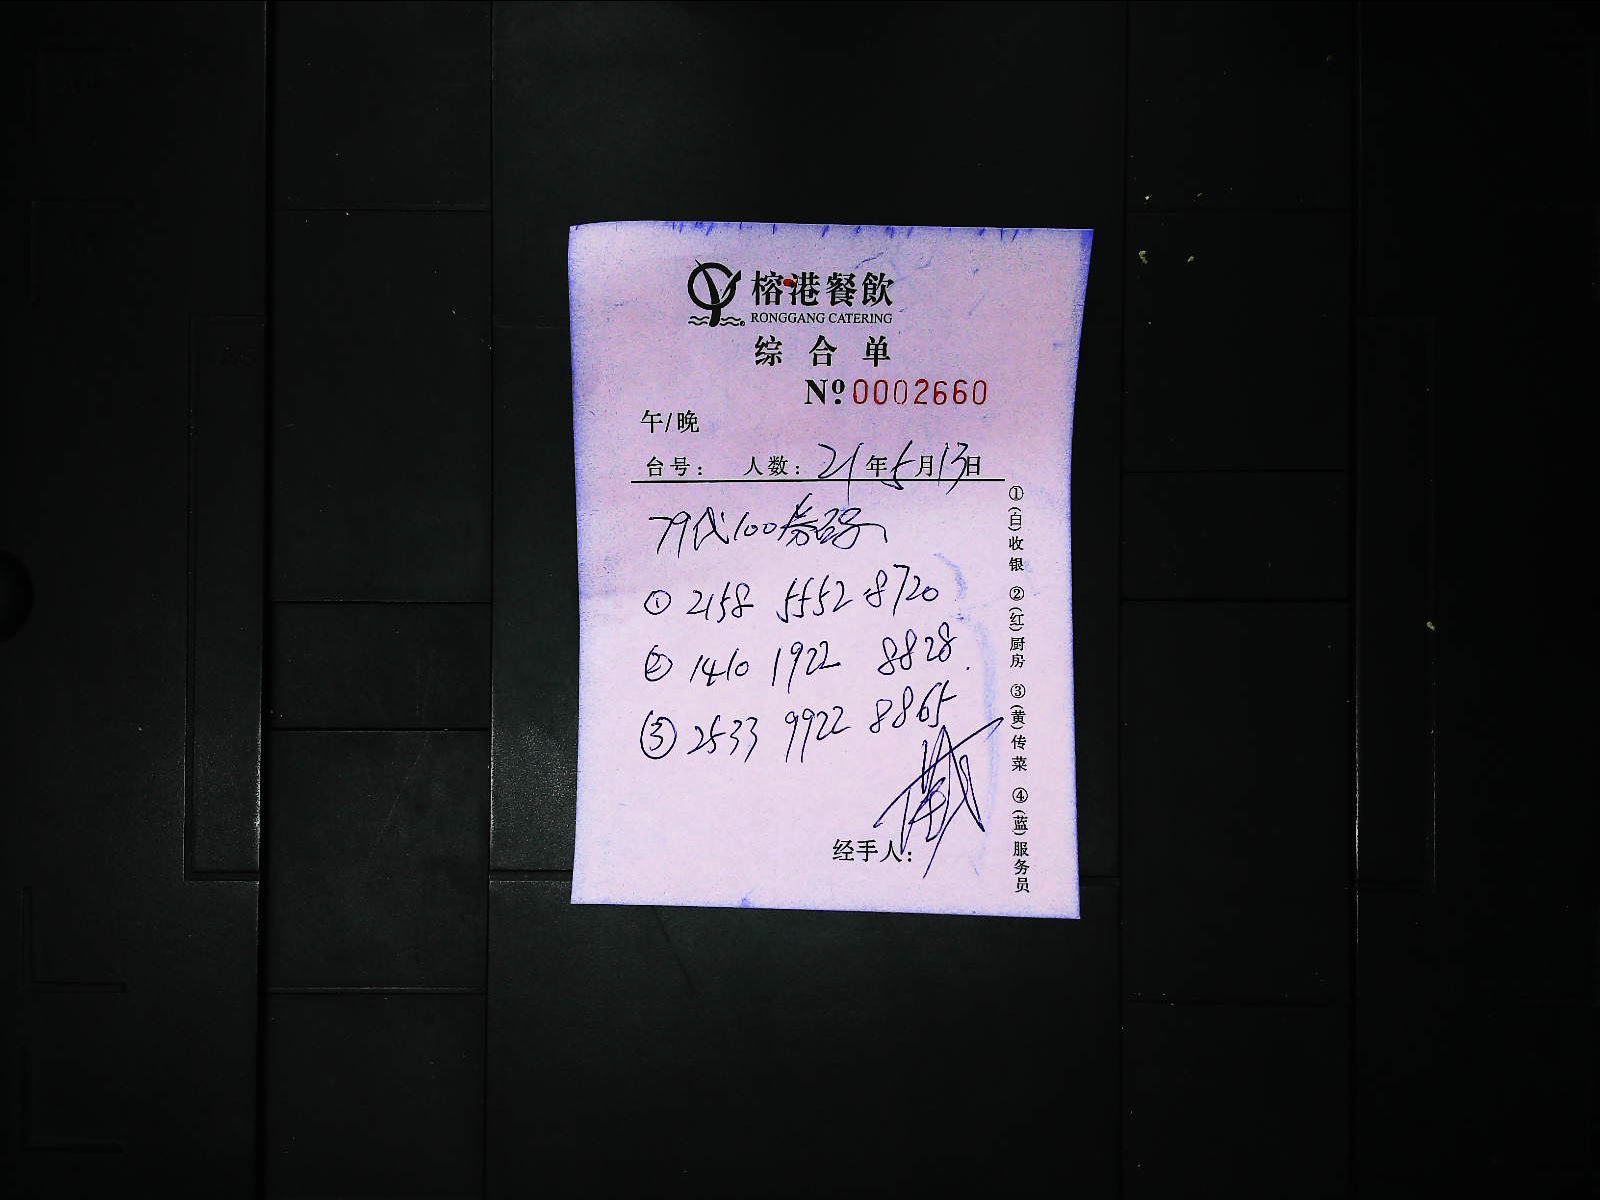 榕港餐飲
RONGGANG CATERING
综合单
№ 0002660
午/晚
台号: 人数: 21年5月13日
79代100券号
① 2158 5552 8720
② 1410 1922 8828.
③ 2533 9922 8865
经手人:
①(白)收银 ②(红)厨房 ③(黄)传菜 ④(蓝)服务员